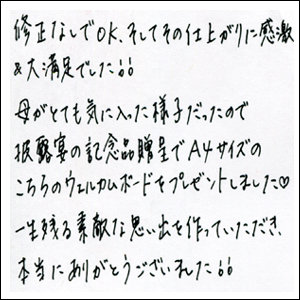 修正なしでOK、そしてその仕上がりに感激
&大満足でした!!
母がとても気に入った様子だったので
披露宴の記念品贈呈でA4サイズの
こちらのウェルカムボードをプレゼントしました♡
一生残る素敵な思い出を作っていただき、
本当にありがとうございました!!